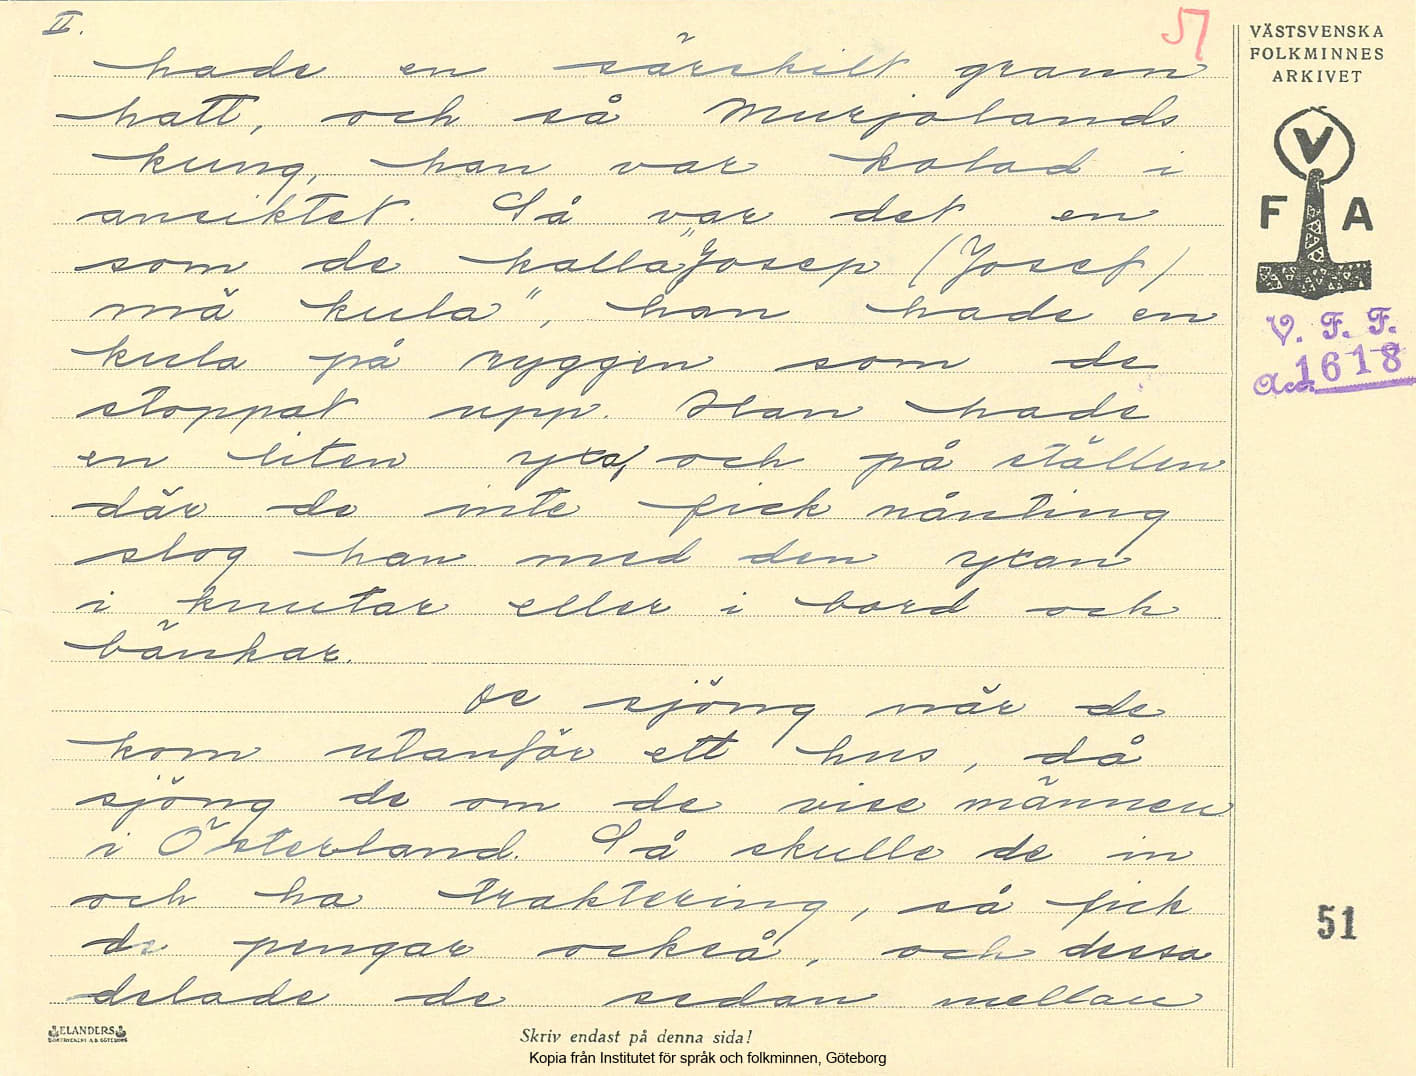 II.
51
hade en särskilt grann
hatt, och så Murjolands
kung, han var kolad i
ansiktet. Så var det en
som de kalla "Josep (Josef)
må kula", han hade en
kula på ryggen som de
stoppat upp. Han hade
en liten yxa, och på ställen
där de inte fick nånting
slog han med den yxan
i knutar eller i bord och
bänkar.
De sjöng när de
kom utanför ett hus, då
sjöng de om de vise männen
i Österland. Så skulle de in
och ha traktering, så fick
de pengar också, och dessa
delade de sedan mellan
VÄSTSVENSKA
FOLKMINNES
ARKIVET
V
F A
V. F. F.
Acc. 1618
51
ELANDERS
BOKTRYCKERI A.B. GÖTEBORG
Skriv endast på denna sida!
Kopia från Institutet för språk och folkminnen, Göteborg